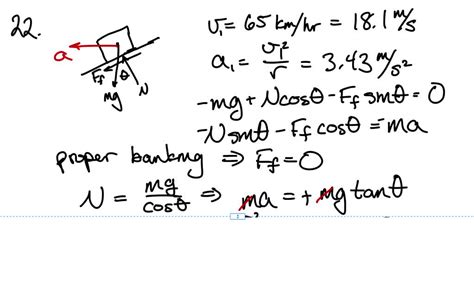 22.
a
F_f
θ
mg
N
v₁ = 65 km/hr = 18.1 m/s
a₁ = v₁²/r = 3.43 m/s²
-mg + Ncosθ - F_f sinθ = 0
-Nsinθ - F_f cosθ = ma
proper banking ⇒ F_f = 0
N = mg/cosθ ⇒ ma = + mg tanθ